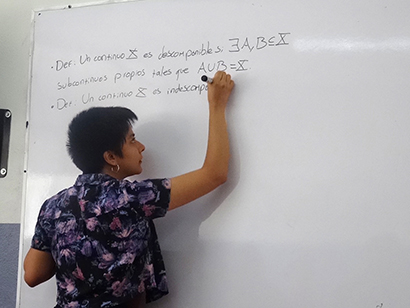 · Def. Un continuo X es descomponible si ∃ A, B ⊆ X
subcontinuos propios tales que A ∪ B = X
· Def. Un continuo X es indescompo